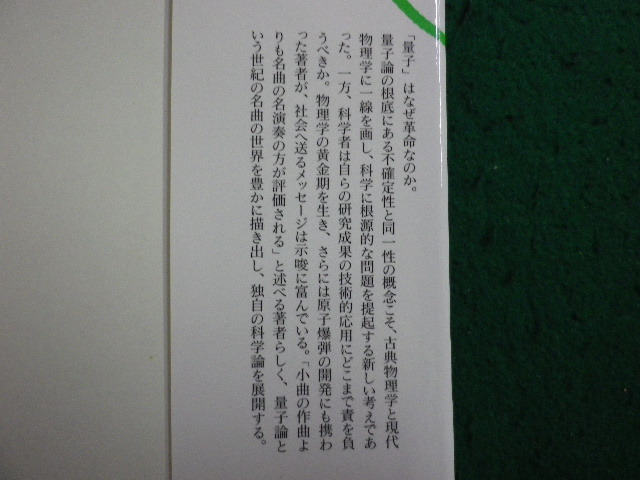 「量子」はなぜ革命なのか。
量子論の根底にある不確定性と同一性の概念こそ、古典物理学と現代
物理学に一線を画し、科学に根源的な問題を提起する新しい考えであ
った。一方、科学者は自らの研究成果の技術的応用にどこまで責を負
うべきか。物理学の黄金期を生き、さらには原子爆弾の開発にも携わ
った著者が、社会へ送るメッセージは示唆に富んでいる。「小曲の作曲よ
りも名曲の名演奏の方が評価される」と述べる著者らしく、量子論と
いう世紀の名曲の世界を豊かに描き出し、独自の科学論を展開する。